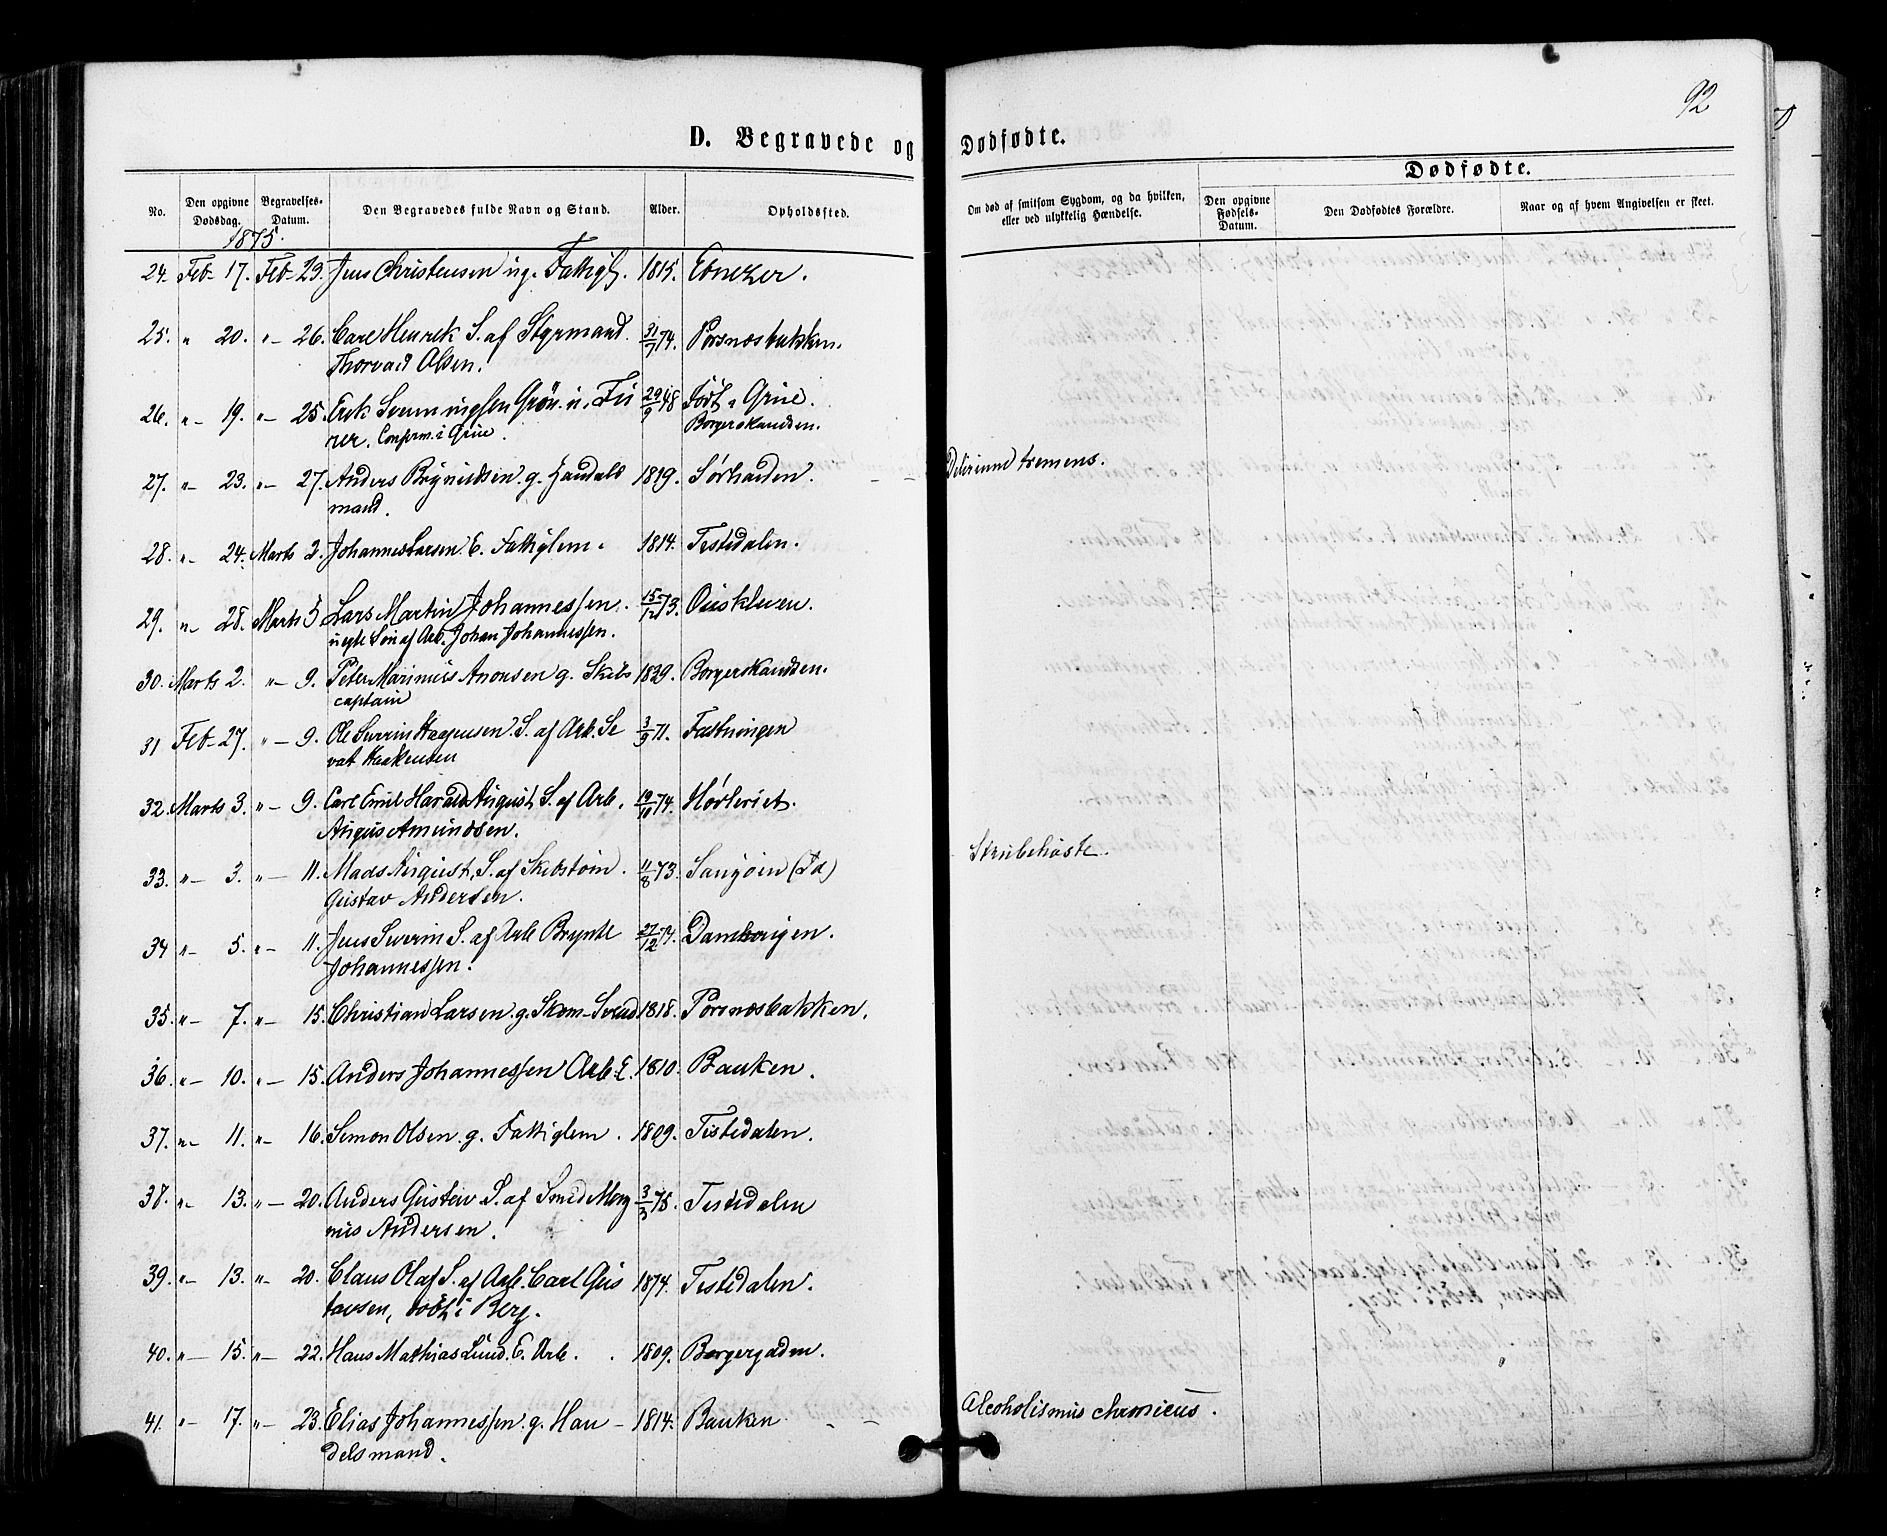 92
D. Begravede og Dødfødte.
Dødfødte.
No. Den opgivne Dødsdag. Begravelses-Datum. Den Begravedes fulde Navn og Stand. Alder. Opholdssted. Om død af smitsom Sygdom, og da hvilken, eller ved ulykkelig Hændelse. Den opgivne Fødsels-Datum. Den Dødfødtes Forældre. Naar og af hvem Angivelsen er skeet.
1875.
24. Feb. 17. Feb. 23. Jens Christensen ug. Fattigl. 1815. Ebnezer.
25. " 20. "– 26. Carl Henrik S. af Styrmand 31/7 74. Porsnæsbakken.
Thorvald Olsen.
26. "– 19. "– 25. Erik Svenningsen Grøn. u. Fu 29/9 48 Født i Grue.
rer. Confirm. i Grue. Borgerskandsen.
27. "– 23. "– 27. Anders Brynildsen g. Handels 1819. Sørhauden. – – Delirium tremens.
mand.
28. "– 24. Marts 2. Johannes Larsen E. Fattiglem. 1814. Tistedalen.
29. "– 28. Marts 5. Lars Martin Johannessen. 15/12 73. Ouskleven.
uegte Søn af Arb. Johan Johannessen.
30. Marts 2. "– 9. Peter Marinius Aronsen g. Skibs 1829. Borgerskandsen.
captain
31 Feb. 27. "– 9. Ole Severin Haagensen. S. af Arb. Se 3/9 71. Fæstningen
vat Haakensen
32. Marts 3. "– 9. Carl Emil Harald August S. af Arb. 19/10 74. Høvleriet.
August Amundsen.
33. "– 3. "– 11. Mads August, S. af Skibstøm. 11/8 73. Sauøen (Id) Strubehoste.
Gustav Andersen.
34 "– 5. "– 11. Jens Severin S. af Arb. Brynte 27/12 74. Damkrigen.
Johannessen.
35. "– 7. "– 15. Christian Larsen g. Skom–Svend. 1818. Porsnæsbakken.
36. "– 10. "– 15. Anders Johannessen Arb. E. 1810. Banken.
37. "– 11. "– 16. Simon Olsen g. Fattiglem. 1809. Tistedalen.
38. "– 13. "– 20. Anders Gustav S. af Smed Mag 3/3 75. Tistedalen
nus Andersen.
39. "– 13. "– 20. Claus Olaf S. af Arb. Carl Gus 1874. Tistedalen.
tavsen, døbt i Berg.
40. "– 15. "– 22. Hans Mathias Lund. E. Arb. 1809. Borgergaden.
41. "– 17. "– 23. Elias Johannessen g. Han – 1814. Banken – – Alcoholismus chronicus.
delsmand.